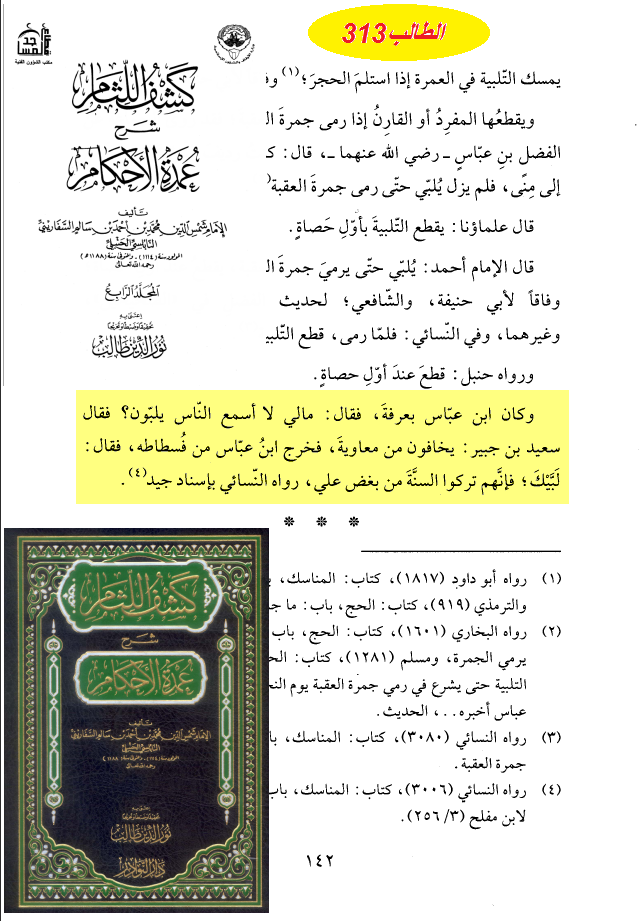 الطالب313
قطاع المساجد
مكتب الشؤون الفنية
كشف اللثام
شرح
عمدة الأحكام
تأليف
الإمام شمس الدين محمد بن أحمد بن سالم السفاريني
النابلسي الحنبلي
المولود سنة (١١١٤) - والمتوفى سنة (١١٨٨هـ)
رحمه الله تعالى
المجلد الرابع
اعتنى به
تحقيقا وضبطا وتخريجا
نور الدين طالب
يمسك التّلبية في العمرة إذا استلمَ الحجرَ؛(١)
ويقطعُها المفرِدُ أو القارِنُ إذا رمى جمرةَ
الفضل بنِ عبّاسٍ ـ رضي الله عنهما ـ، قال:
إلى مِنًى، فلم يزل يُلبّي حتّى رمى جمرةَ العقبة
قال علماؤنا: يقطع التّلبيةَ بأوّلِ حَصاةٍ.
قال الإمام أحمد: يُلبّي حتّى يرميَ جمرةَ
وفاقاً لأبي حنيفة، والشّافعي؛ لحديث
وغيرهما، وفي النّسائي: فلمّا رمى، قطع
ورواه حنبل: قطعَ عندَ أوّلِ حصاةٍ.
وكان ابن عبّاس بعرفةَ، فقال: مالي لا أسمع النّاس يلبّون؟ فقال
سعيد بن جبير: يخافون من معاويةَ، فخرج ابنُ عبّاس من فُسطاطه، فقال:
لَبَّيْكَ؛ فإنَّهم تركوا السنَّةَ من بغض علي، رواه النّسائي بإسناد جيد(٤).
* * *
(١) رواه أبو داود (١٨١٧)، كتاب: المناسك،
والترمذي (٩١٩)، كتاب: الحج، باب: ما
(٢) رواه البخاري (١٦٠١)، كتاب: الحج، باب
يرمي الجمرة، ومسلم (١٢٨١)، كتاب:
التلبية حتى يشرع في رمي جمرة العقبة يوم
عباس أخبره . . ، الحديث.
(٣) رواه النسائي (٣٠٨٠)، كتاب: المناسك،
جمرة العقبة.
(٤) رواه النسائي (٣٠٠٦)، كتاب: المناسك، باب
لابن مفلح (٣/ ٢٥٦).
١٤٢
كشف اللثام
شرح
عمدة الأحكام
تأليف
الإمام شمس الدين محمد بن أحمد بن سالم السفاريني
النابلسي الحنبلي
رحمه الله تعالى
اعتنى به
تحقيقا وضبطا وتخريجا
نور الدين طالب
دار النوادر